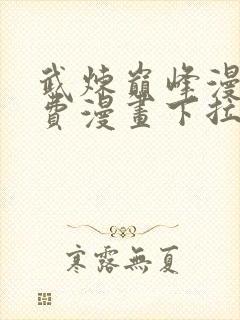 武煉巔峰漫
費漫畫下拉
寒露無夏